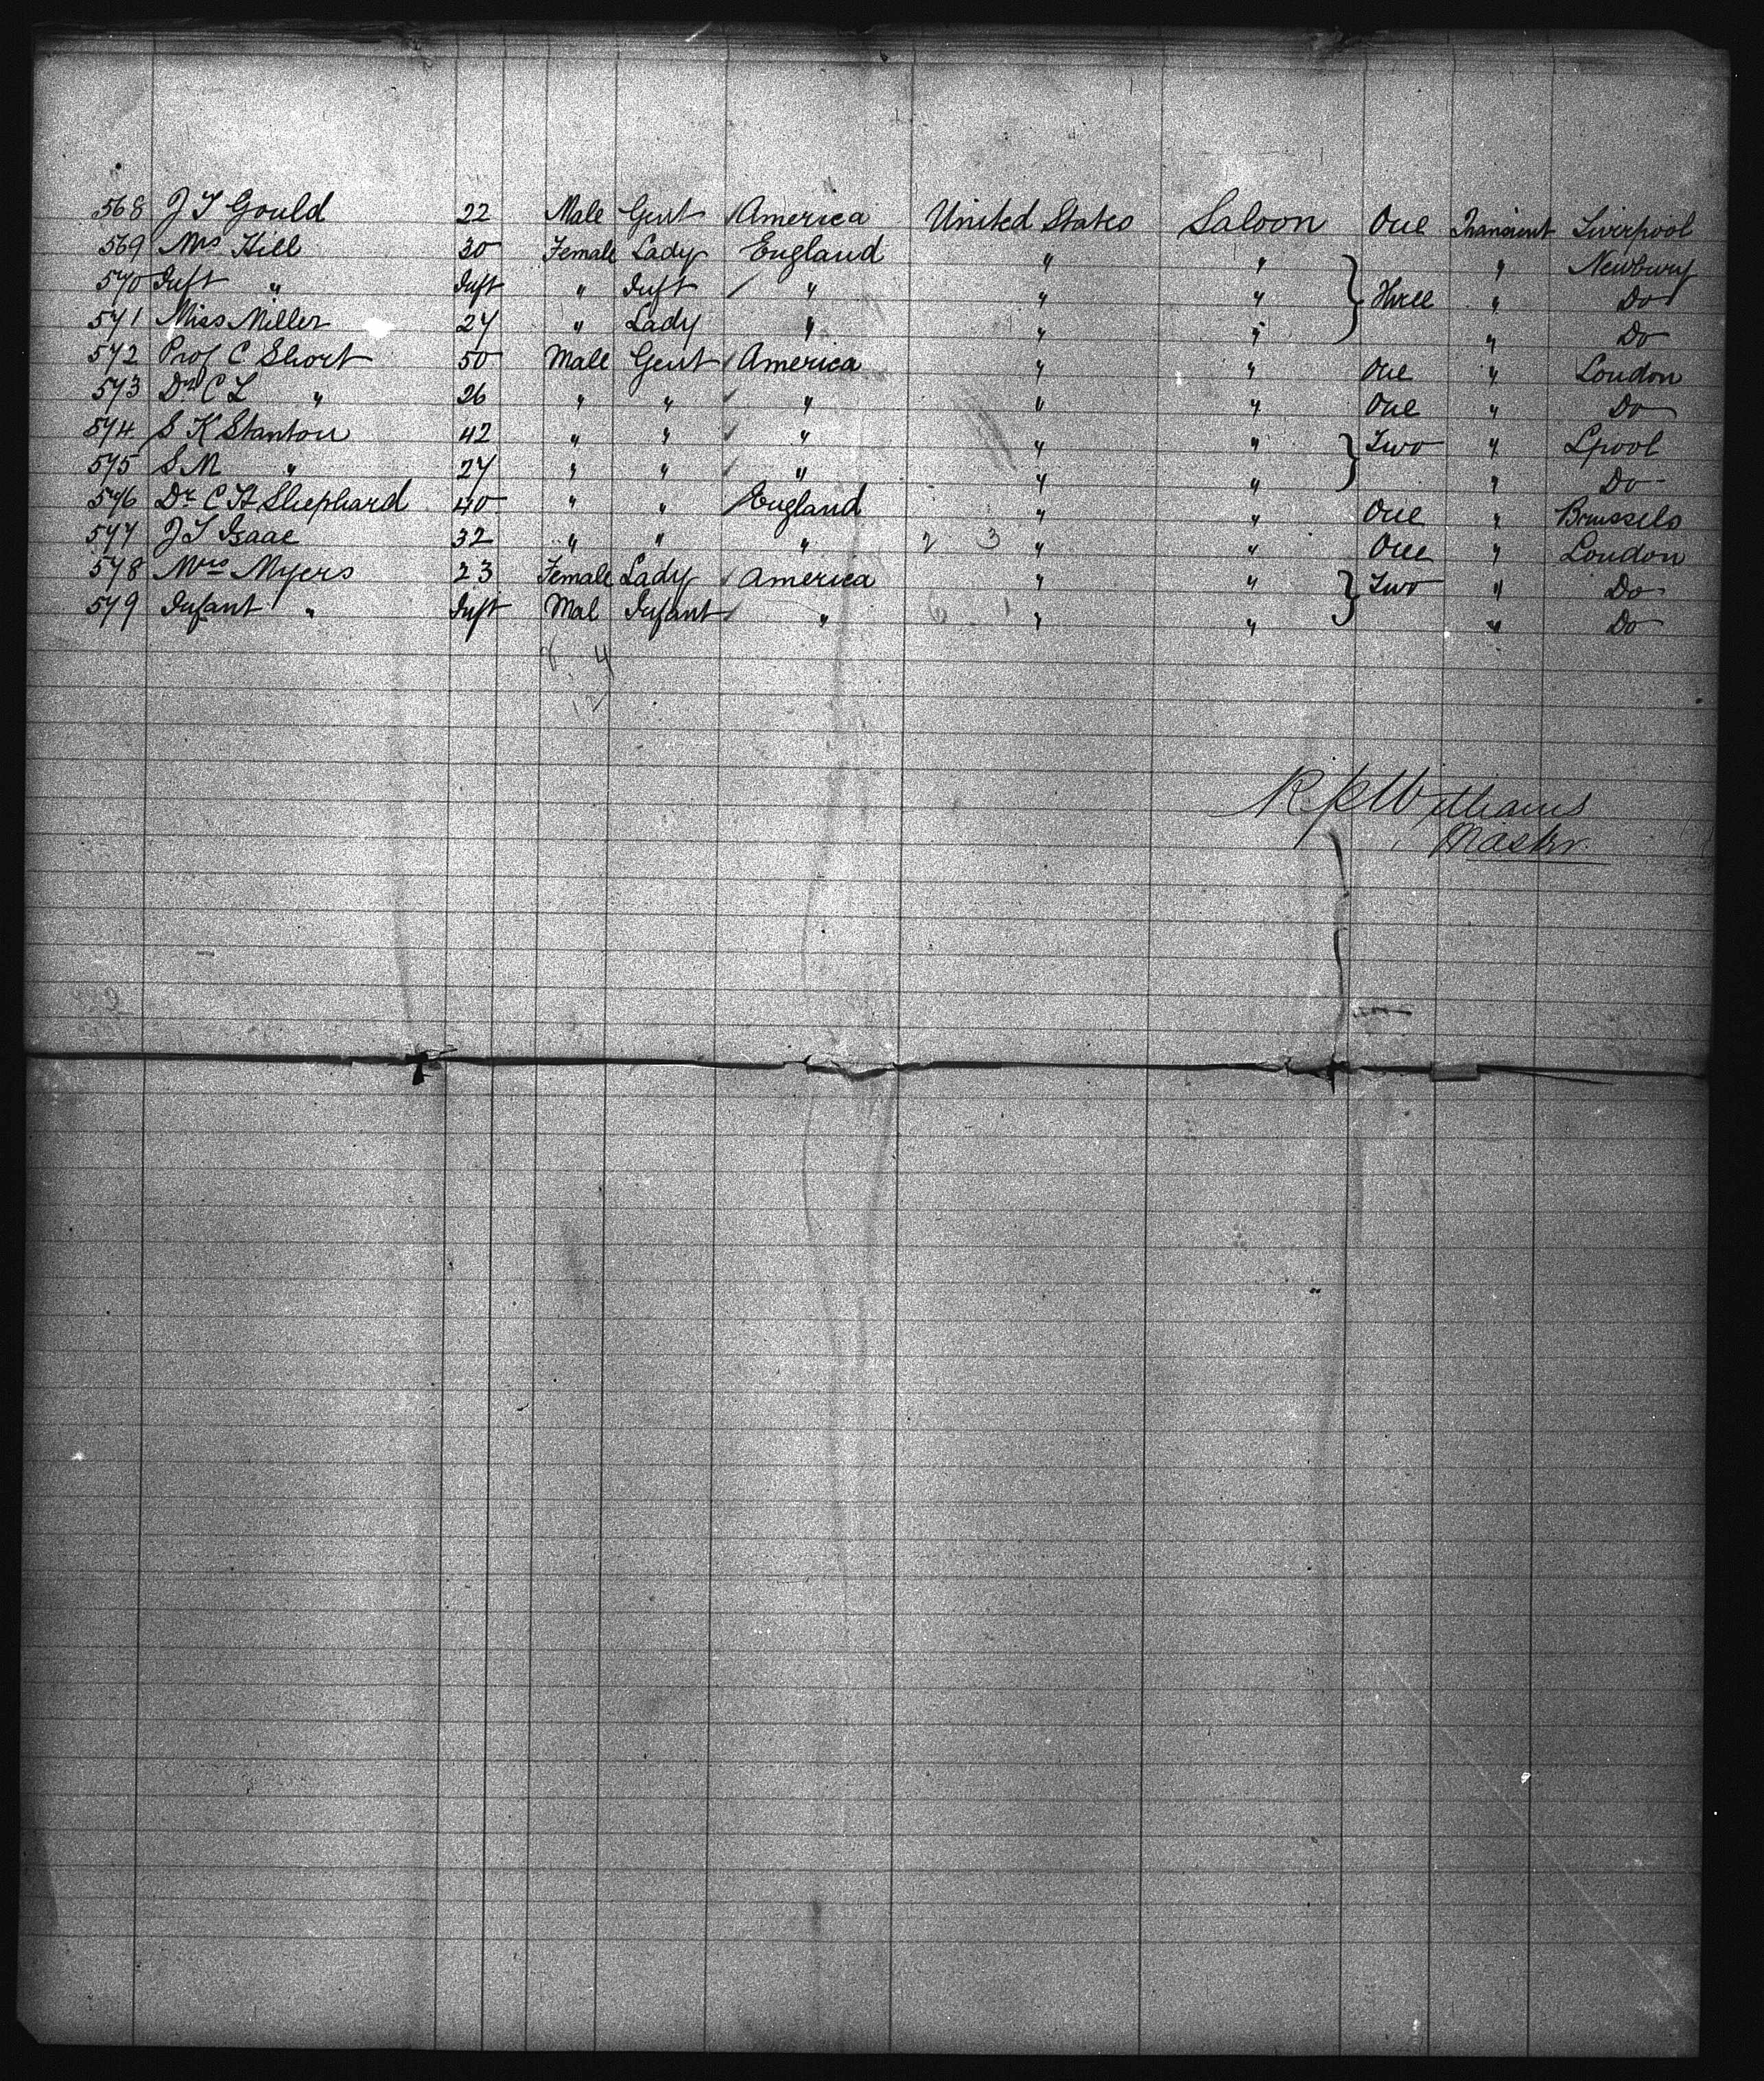 568 J T Gould 22 Male Gent America United States Saloon One Transient Liverpool
569 Mrs Hill 30 Female Lady England " " " Newbury
570 Inft " Inft " Inft " " " Three " Do
571 Miss Miller 27 " Lady " " " " Do
572 Prof C Short 50 Male Gent America " " One " London
573 Dr C L " 26 " " " " " One " Do
574 S K Stanton 42 " " " " " Two " Lpool
575 S M " 27 " " " " " " Do
576 Dr C H Shephard 40 " " England " " One " Brussels
577 J S Isaac 32 " " " 2 3 " " One " London
578 Mrs Myers 23 Female Lady America " " Two " Do
579 Infant " Inft Mal Infant " 6 1 " " " Do
8 4
12
Williams
Master